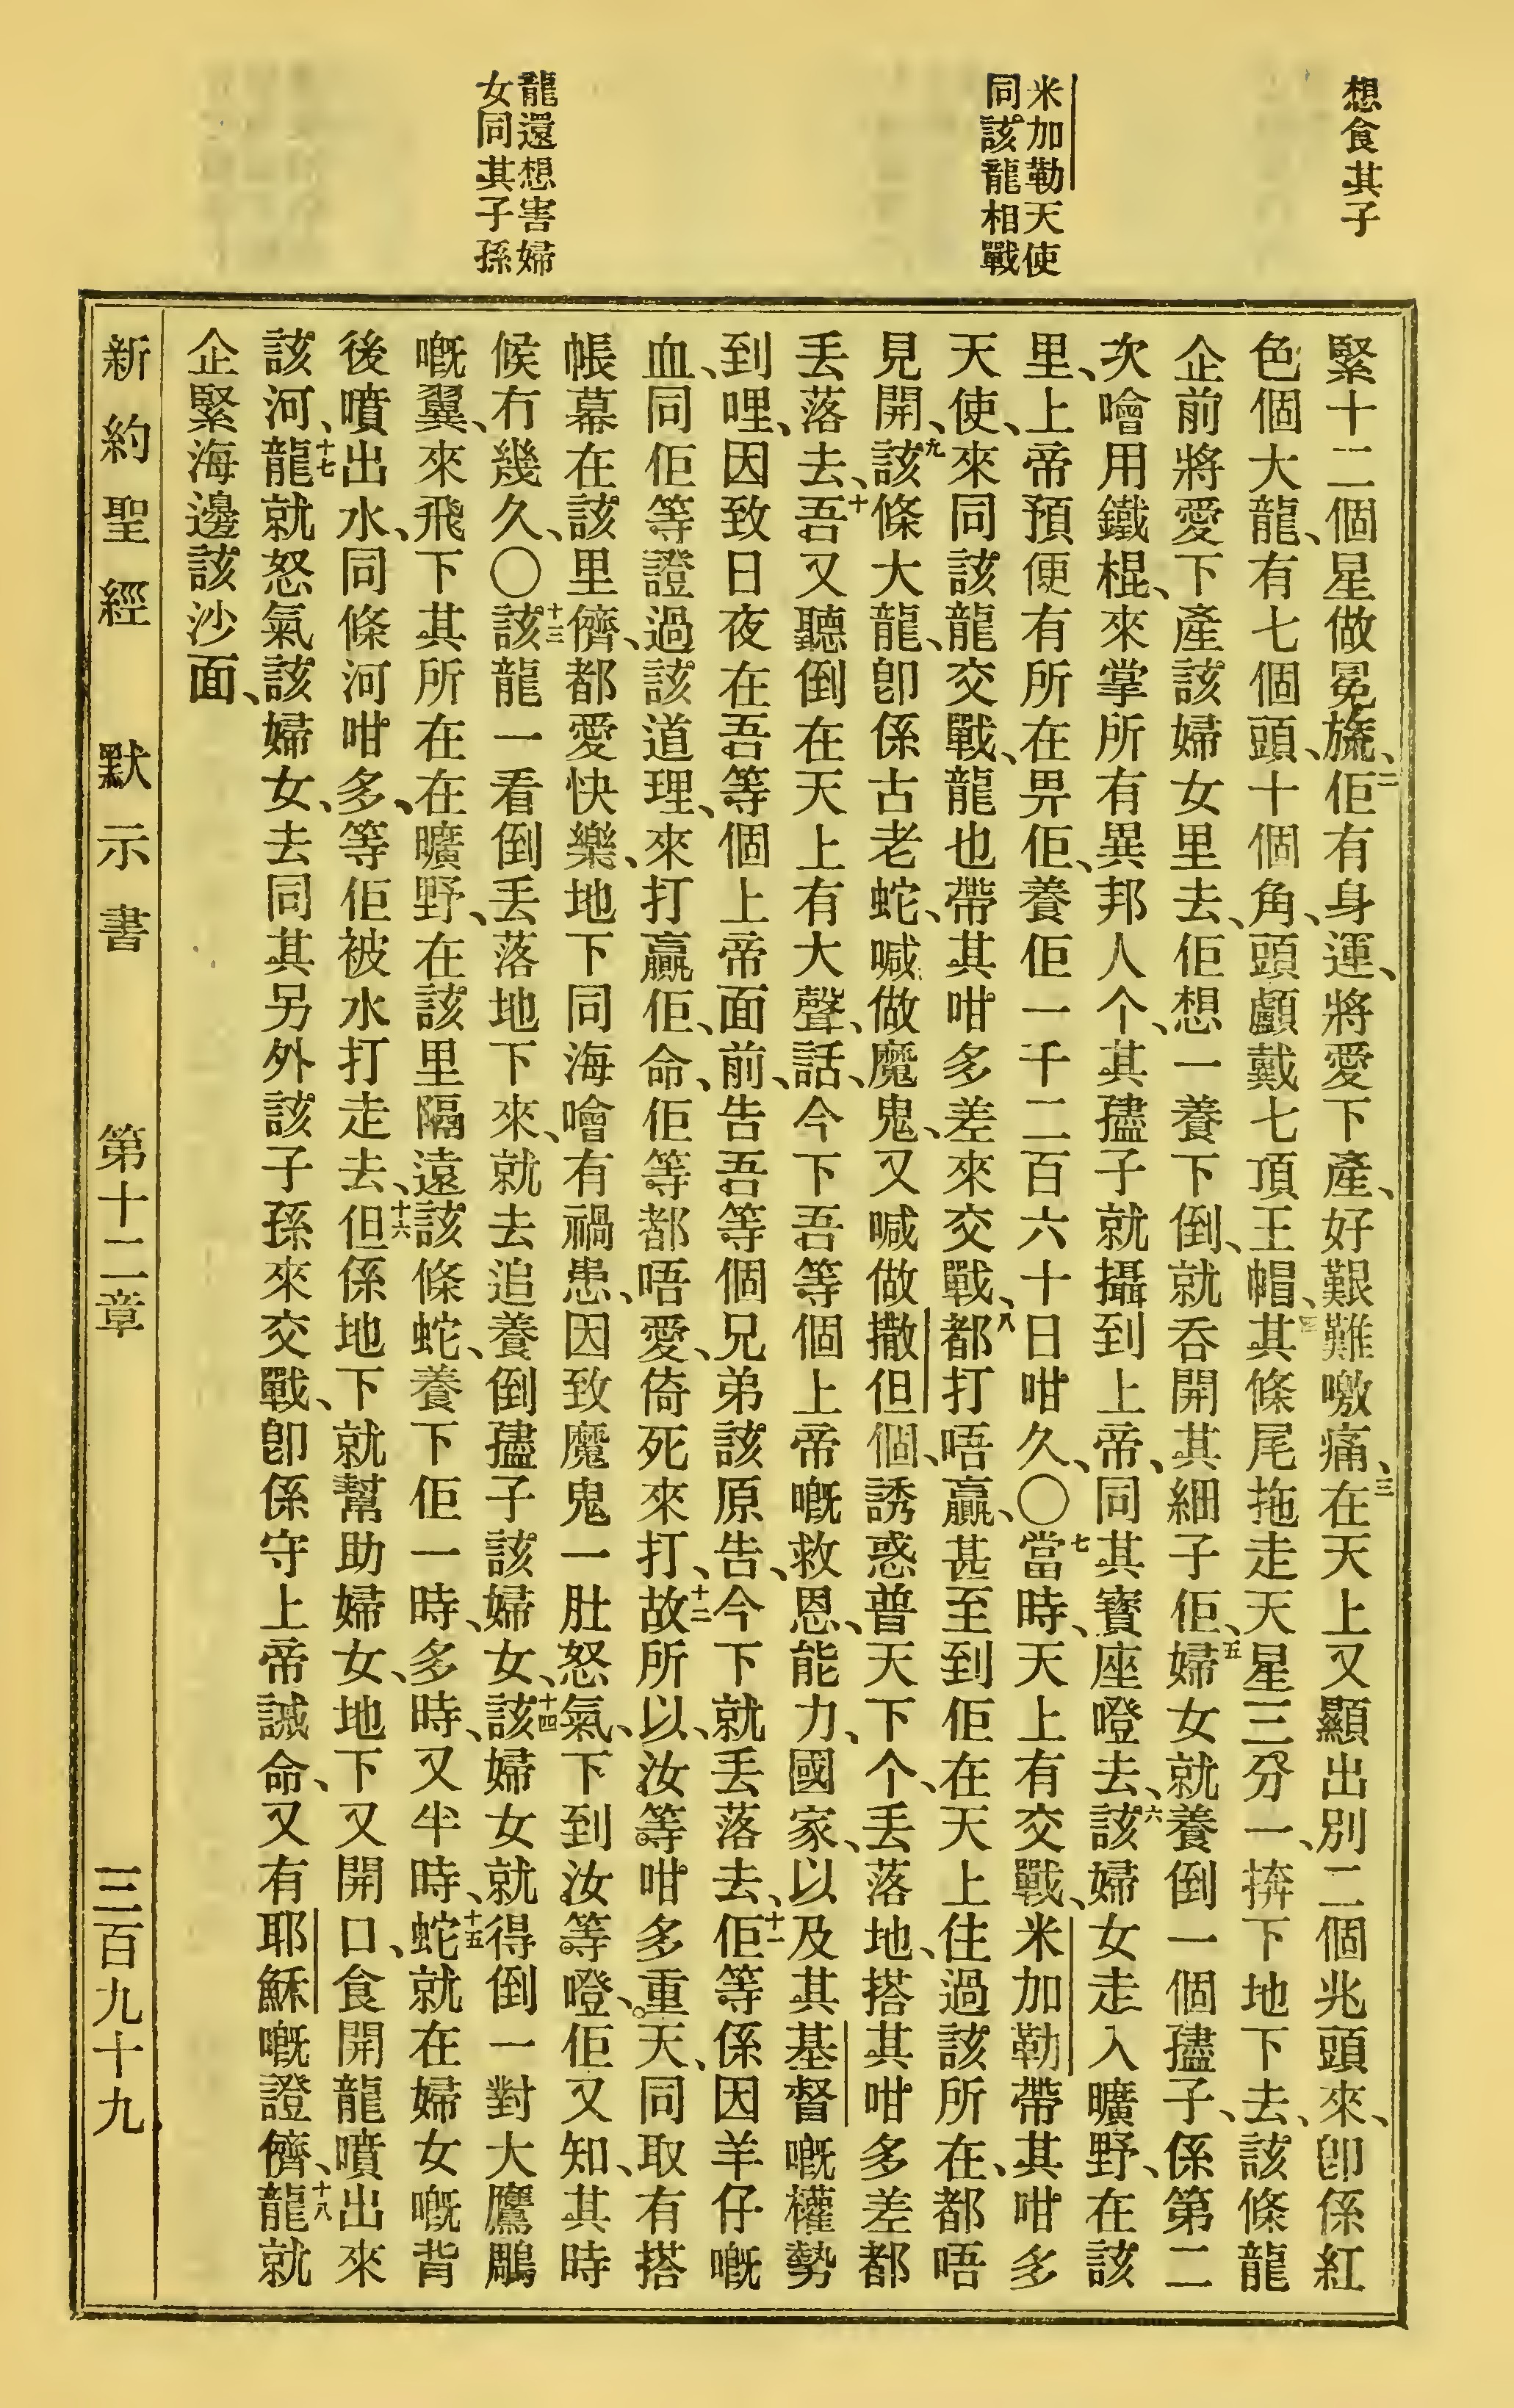 想食其子
米加勒天使
同該龍相戰
龍還想害婦
女同其子孫
緊十二個星做冕旒、二佢有身運、將愛下產、好艱難噭痛、三在天上又顯出別二個兆頭來、卽係紅
色個大龍、有七個頭、十個角、頭顱戴七頂王帽、四其條尾拖走天星三分一、擠下地下去、該條龍
企前將愛下產該婦女里去、佢想一養下倒、就呑開其細子佢、五婦女就養倒一個孻子、係第二
次噲用鐵棍、來掌所有異邦人个、其孻子就攝到上帝、同其寶座嶝去、六該婦女走入曠野、在該
里、上帝預便有所在畀佢、養佢一千二百六十日咁久、〇七當時、天上有交戰、米加勒帶其咁多
天使、來同該龍交戰、龍也帶其咁多差來交戰、八都打唔贏、甚至到佢在天上住過該所在、都唔
見開、九該條大龍、卽係古老蛇、喊做魔鬼、又喊做撒但個、誘惑普天下个、丢落地、搭其咁多差都
丢落去、十吾又聽倒在天上有大聲、話、今下吾等個上帝嘅救恩、能力、國家、以及其基督嘅權勢
到哩、因致日夜在吾等個上帝面前、告吾等個兄弟該原告、今下就丢落去、十一佢等係因羊仔嘅
血、同佢等證過該道理、來打贏佢、命、佢等都唔愛、倚死來打、十二故所以、汝等咁多重天、同取有搭
帳幕在該里儕、都愛快樂、地下同海噲有禍患、因致魔鬼一肚怒氣、下到汝等嶝、佢又知、其時
候冇幾久、〇十三該龍一看倒丢落地下來、就去追養倒孻子該婦女、十四該婦女就得倒一對大鷹鵰
嘅翼、來飛下其所在在曠野、在該里隔遠該條蛇、養下佢一時、多時、又半時、十五蛇就在婦女嘅背
後噴出水、同條河咁多、等佢被水打走去、十六但係地下就幫助婦女、地下又開口、食開龍噴出來
該河、十七龍就怒氣該婦女、去同其另外該子孫來交戰、卽係守上帝誡命、又有耶穌嘅證儕、十八龍就
企緊海邊該沙面、
新約聖經　默示書　第十二章　三百九十九